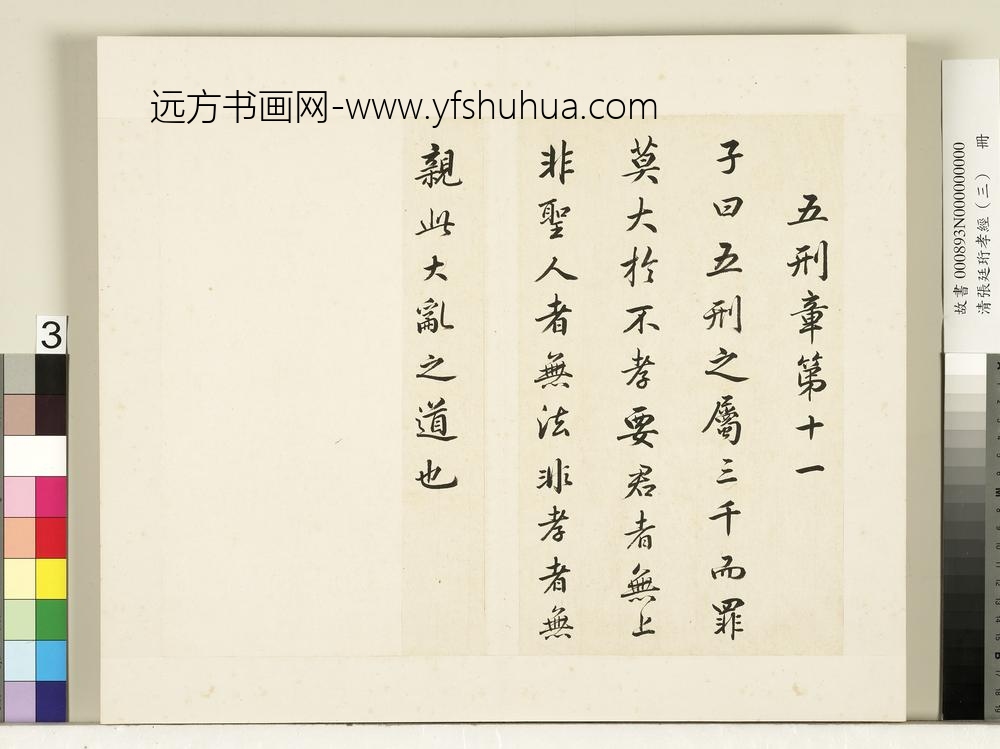 远方书画网-www.yfshuhua.com
五刑章第十一
子曰五刑之屬三千而罪
莫大於不孝要君者無上
非聖人者無法非孝者無
親此大亂之道也
故書 000893N000000000
清張廷珩孝經（三） 冊
3